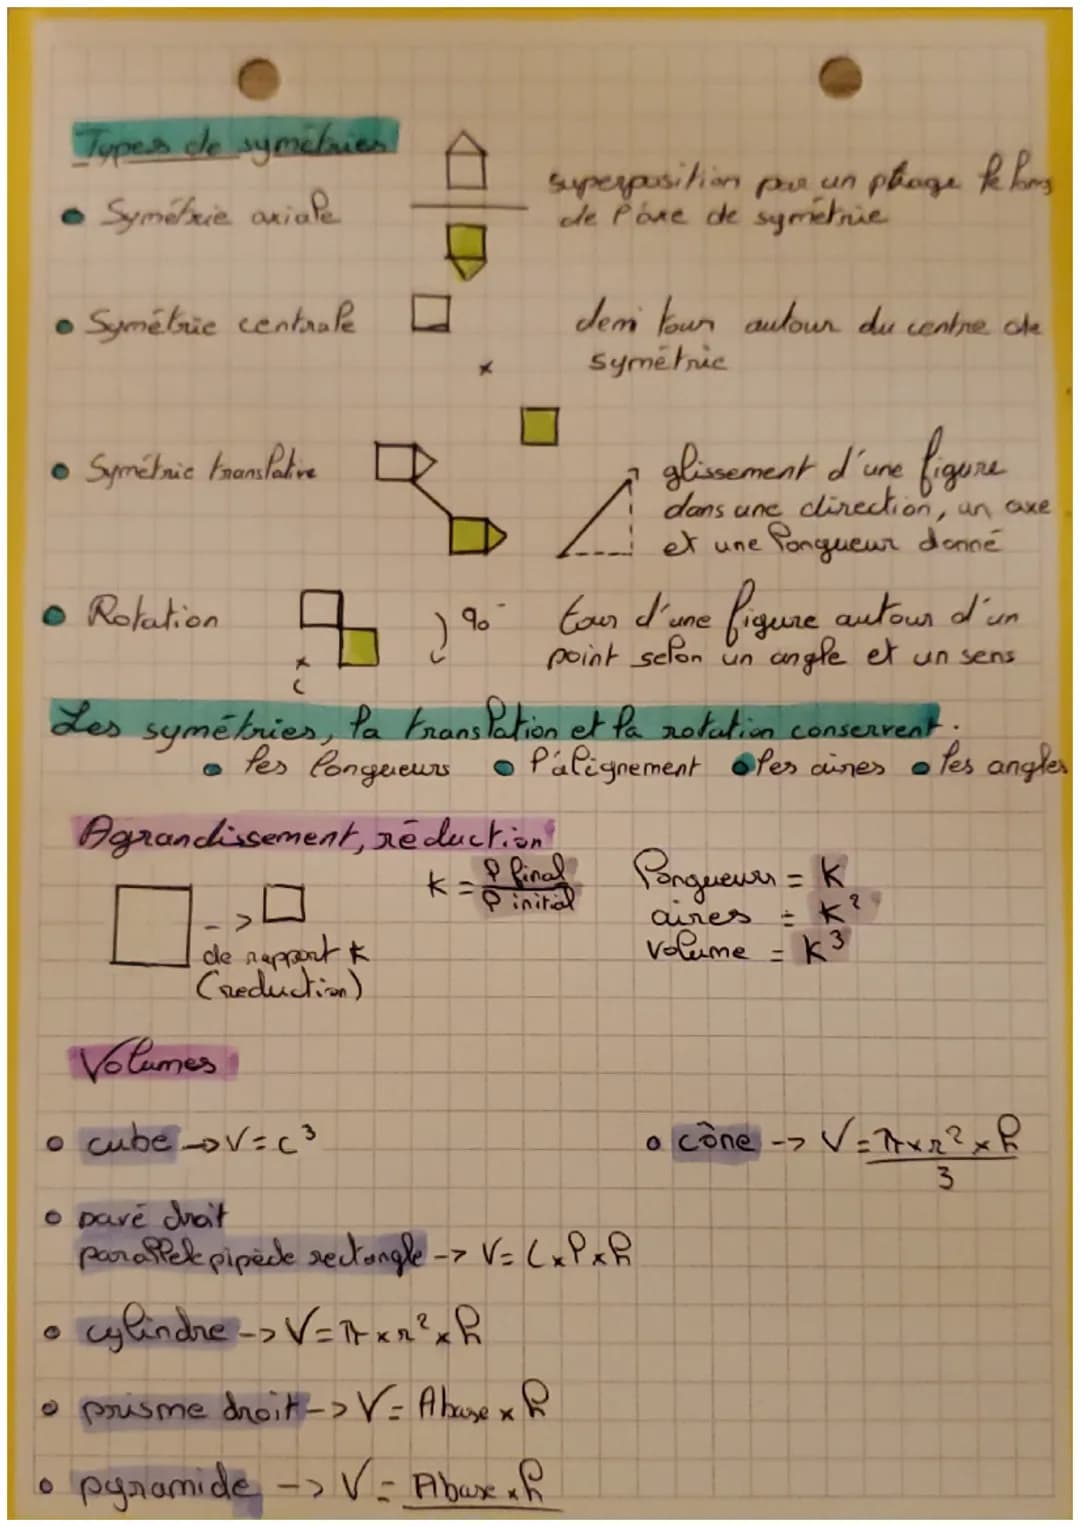 Types de symétries
• Symétrie axiale
superposition par un pliage le long
de l'axe de symétrie
• Symétrie centrale
demi tour autour du centre de
symétrie
x
• Symétrie translative
glissement d'une figure
dans une direction, un axe
et une longueur donné
• Rotation
90°
tour d'une figure autour d'un
point selon un angle et un sens
x
c
Les symétries, la translation et la rotation conservent :
• les longueurs • l'alignement • les aires • les angles
Agrandissement, réduction
K = l final / l initial
longueurs = K
aires = K²
volume = K³
-->
de rapport K
(reduction)
Volumes
• cube -> V = c³
• cône -> V = π x r² x h / 3
• pavé droit
parallélepipède rectangle -> V = L x l x h
• cylindre -> V = π x r² x h
• prisme droit -> V = Abase x h
• pyramide -> V = Abase x h